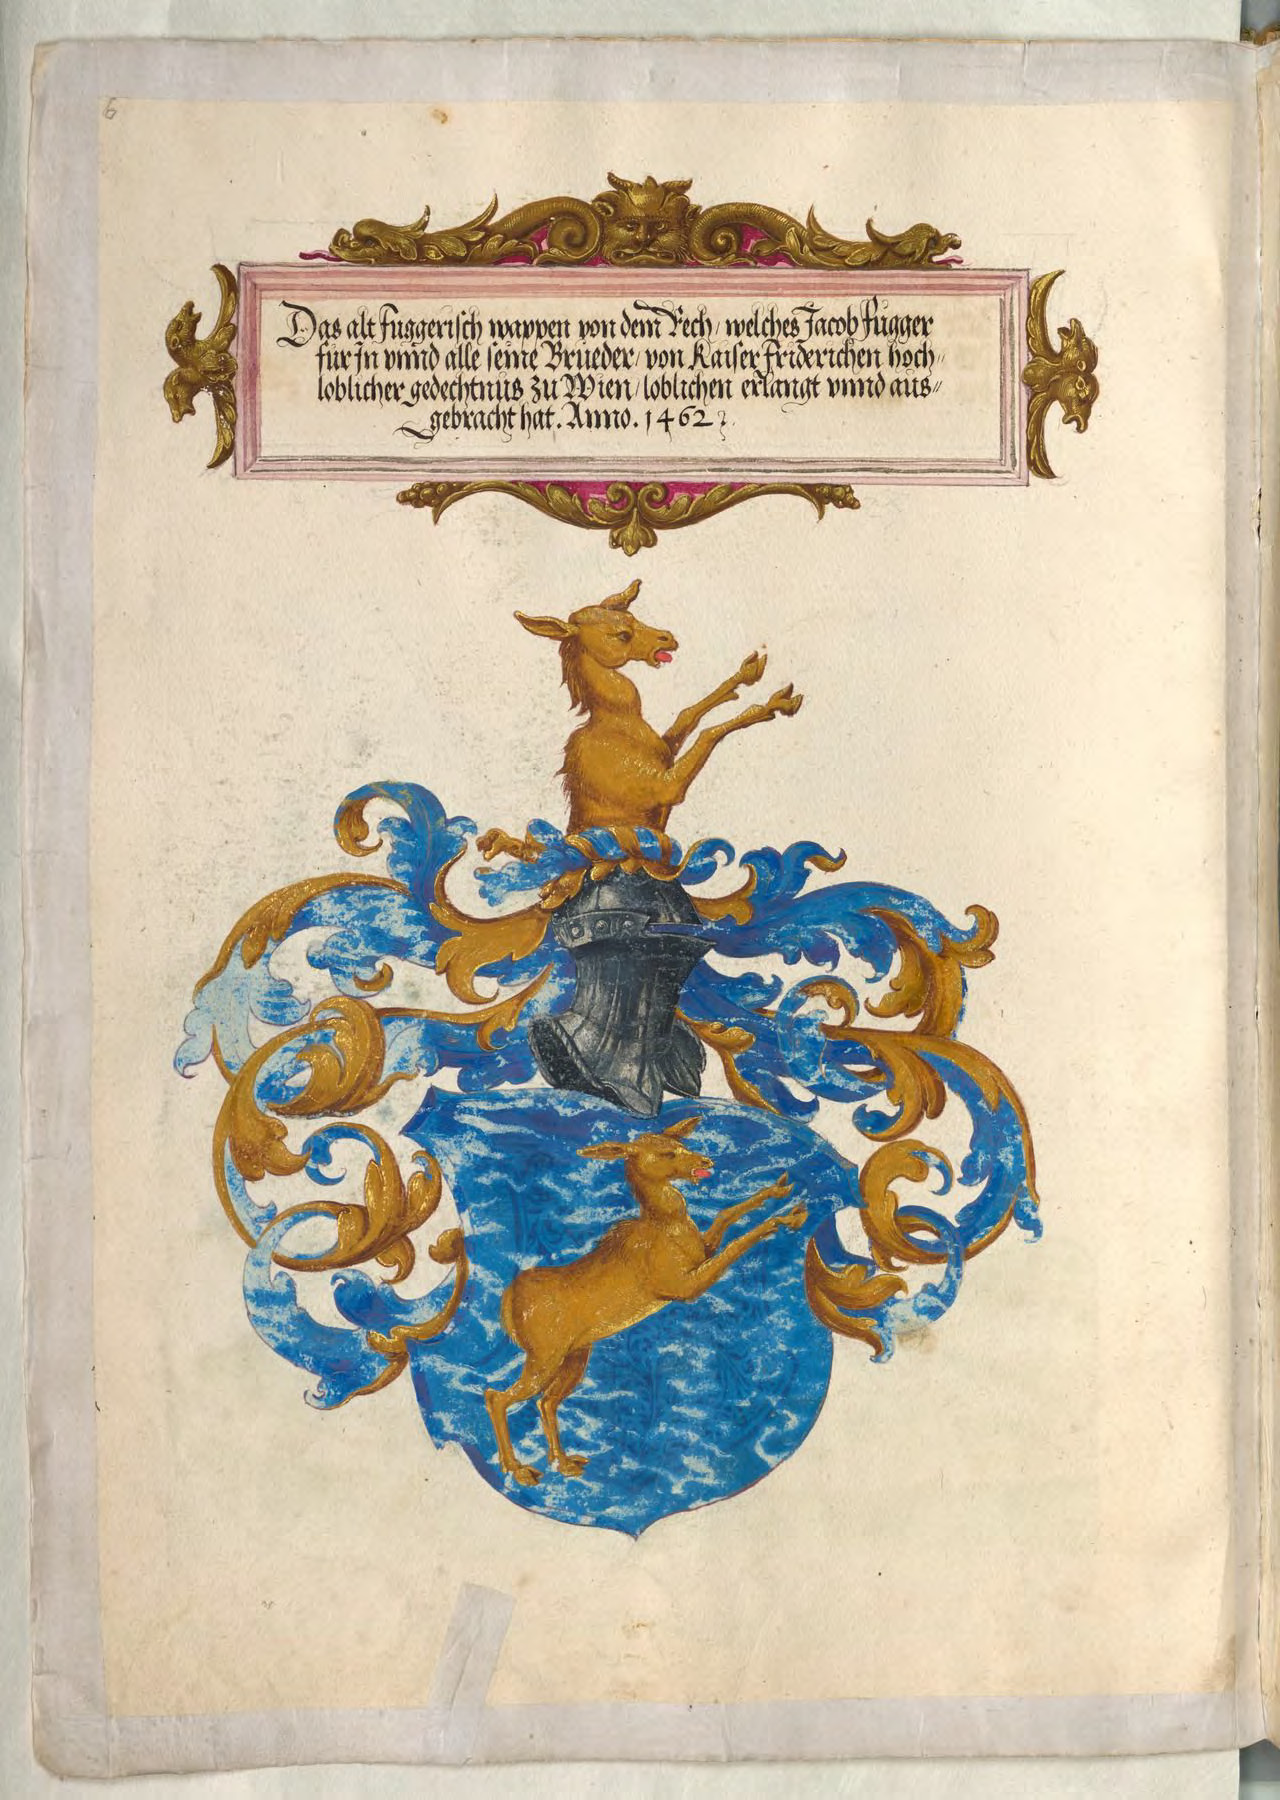 6
Das alt fuggerisch wappen von dem Rech, welches Jacob Fugger
für Jn vnnd alle seine Brüeder, von Kaiser friderichen hoch-
loblicher gedechtnüs zu Wien, loblichen erlangt vnnd aus-
gebracht hat. Anno. 1462